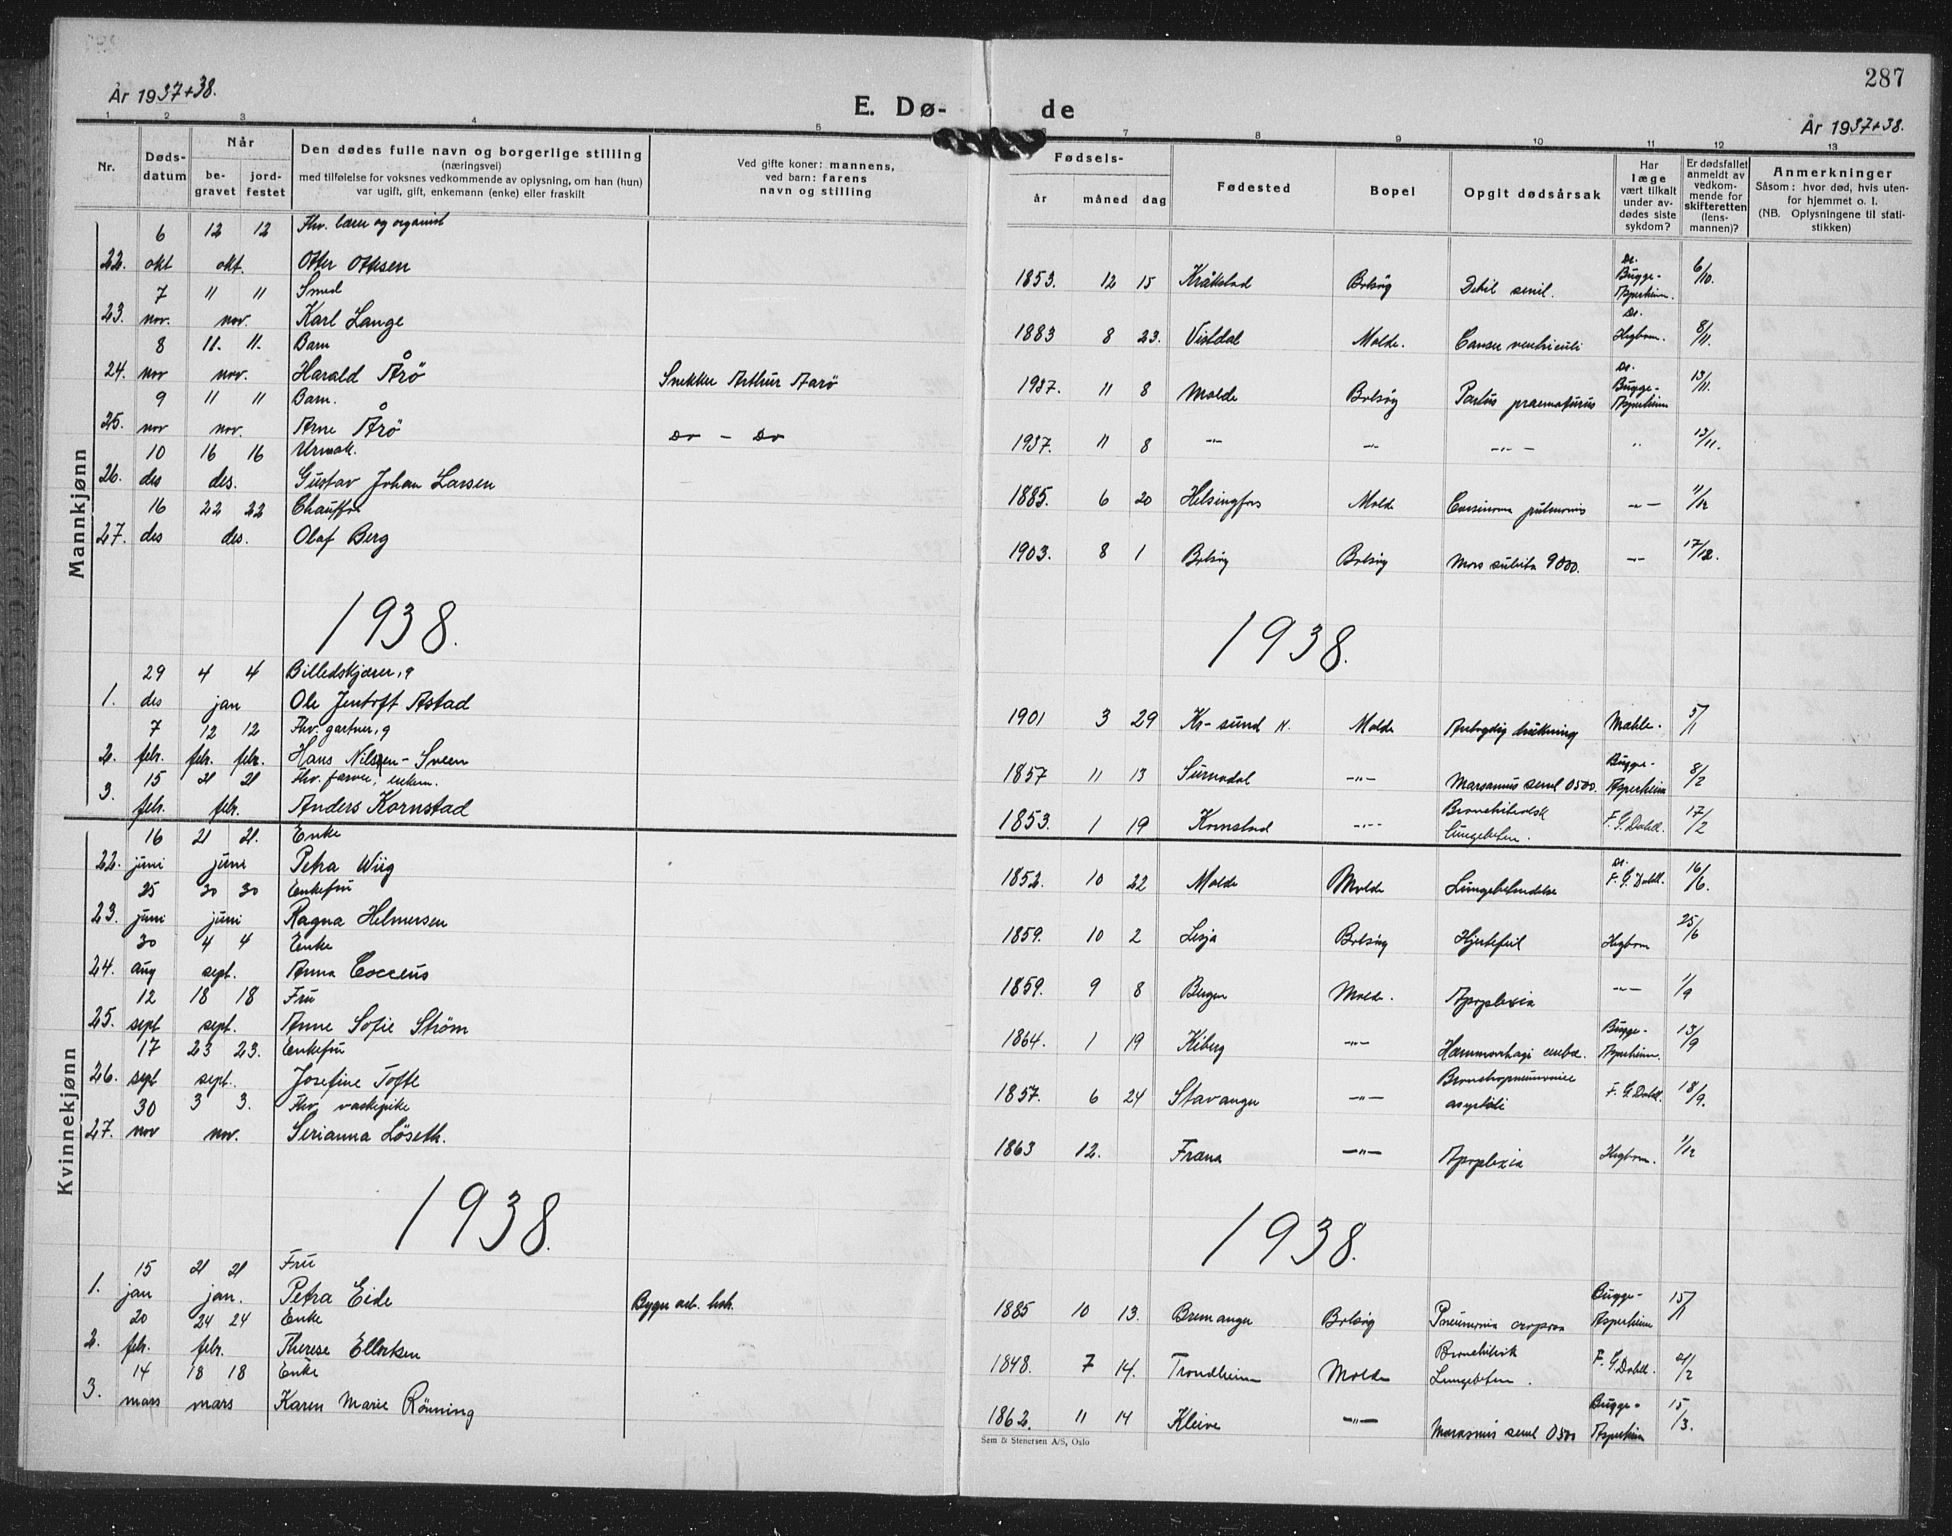 287
År 1937+38.
E. Dø- de
År 1937+38.
1 2 3 4 5 6 7 8 9 10 11 12 13
Nr.
Døds-
datum
Når
be-
gravet
jord-
festet
Den dødes fulle navn og borgerlige stilling
(næringsvei)
med tilføielse for voksnes vedkommende av oplysning, om han (hun)
var ugift, gift, enkemann (enke) eller fraskilt
Ved gifte koner: mannens,
ved barn: farens
navn og stilling
Fødsels-
år måned dag
Fødested
Bopel
Opgit dødsårsak
Har
læge
vært tilkalt
under av-
dødes siste
sykdom?
Er dødsfallet
anmeldt av
vedkom-
mende for
skifteretten
(lens-
mannen)?
Anmerkninger
Såsom: hvor død, hvis uten-
for hjemmet o. l.
(NB. Oplysningene til stati-
stikken)
Mannkjønn
6 12 12 Fhv. lærer og organist
22. okt okt. Otter Ottesen 1853. 12 15 Kråkstad Bolsøy Debil senil. Dr. Bugge-Asperheim. 6/10.
7 11 11 Smed
23. nov. nov. Karl Lange 1883 8 23. Vistdal Molde. Cancer ventriculi Dr. Høgbom. 8/11.
8 11. 11. Barn
24. nov nov. Harald Årö Snekker Arthur Aarö 1937. 11 8 Molde Bolsøy Partus praematurus Dr. Bugge-Asperheim 13/11.
9 11 11 Barn.
25. nov nov. Arne Årö Do – Do 1937. 11 8 –"– –"– –"– " 13/11.
10 16 16 Urmak.
26. des des. Gustav Johan Larsen 1885. 6 20 Helsingfors Molde Carsinoma pulmonis –"– 11/12
16 22 22 Chauffør
27. des des. Olaf Berg 1903. 8 1 Bolsøy Bolsøy Mors subita 9000. –"– 17/12.
1938. 1938.
29 4 4 Billedskjærer, g
1. des jan Ole Jentoft Astad 1901 3 29 Kr-sund N. Molde Mæhle. 5/1
7 12 12 Fhv. gartner, g
2. febr. febr. febr. Hans Nilssen-Sveen 1857 11 13 Surnadal –"– Marasmus senil 0500. Bugge-Asperheim 8/2
15 21 21 Fhv. farver, enkem.
3. febr. febr. Anders Kornstad 1853. 1 19 Kornstad –"– Bronchitisk Lungebeten. F. G. Dahl. 17/2
Kvinnekjønn
16 21 21. Enke
22. juni juni Petra Wiig 1852. 10 22 Molde Molde Lungebetendelse Dr. F. G. Dahl. 16/6.
25 30 30 Enkefru
23. juni juni Ragna Helmersen 1859. 10 2 Lesja Bolsøy Hjertefeil Høgbom 25/6
30 4 4 Enke
24. aug sept. Anna Cocceus 1859. 9 8 Bergen Molde. Apoplexia –"– 1/9
12 18 18 Fru
25. sept sept. Anne Sofie Strøm 1864. 1 19 Kiberg –"– Hæmmorrhagi cerebr. Bugge-Asperheim. 13/9
17 23 23. Enkefru
26. sept sept. Josefine Tofte 1857. 6 24 Stavanger –"– Bronchopneumonia F. G. Dahl. 18/9.
30 3 3. Fhv. vaskepike
27. nov nov. Serianna Løseth. 1863 12. Fræna –"– Apoplexia Høgbom. 1/12
1938. 1938.
15 21 21 Fru
1. jan jan. Petra Eide 1885 10 13. Bremanger Bolsøy Pneumonia crouposa Bugge-Asperheim 15/1
20 24 24 Enke
2. febr. febr. Therese Ellerksen 1848. 7 14. Trondheim Molde Bronchitisk Lungebeten. F. G. Dahl. 21/2
14 18 18 Enke
3. mars mars Karen Marie Rönning 1862. 11 14 Kleive –"– Marasmus senil 0500 Bugge-Asperheim 15/3.
Sem & Stenersen A/S, Oslo